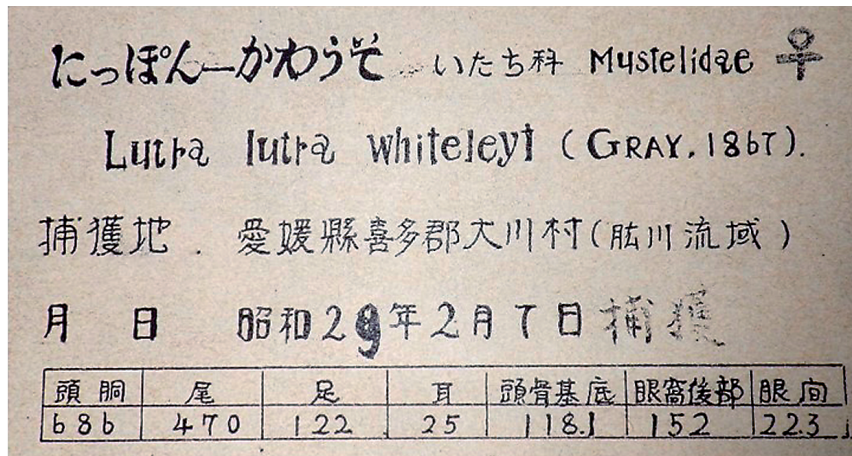 にっぽん—かわうそ いたち科 Mustelidae ♀
Lutra lutra whiteleyi (GRAY, 1867).
捕獲地. 愛媛縣喜多郡大川村(肱川流域)
月 日 昭和29年2月7日捕獲
頭胴 尾 足 耳 頭骨基底 眼窩後部 眼間
686 470 122 25 118.1 152 22.3